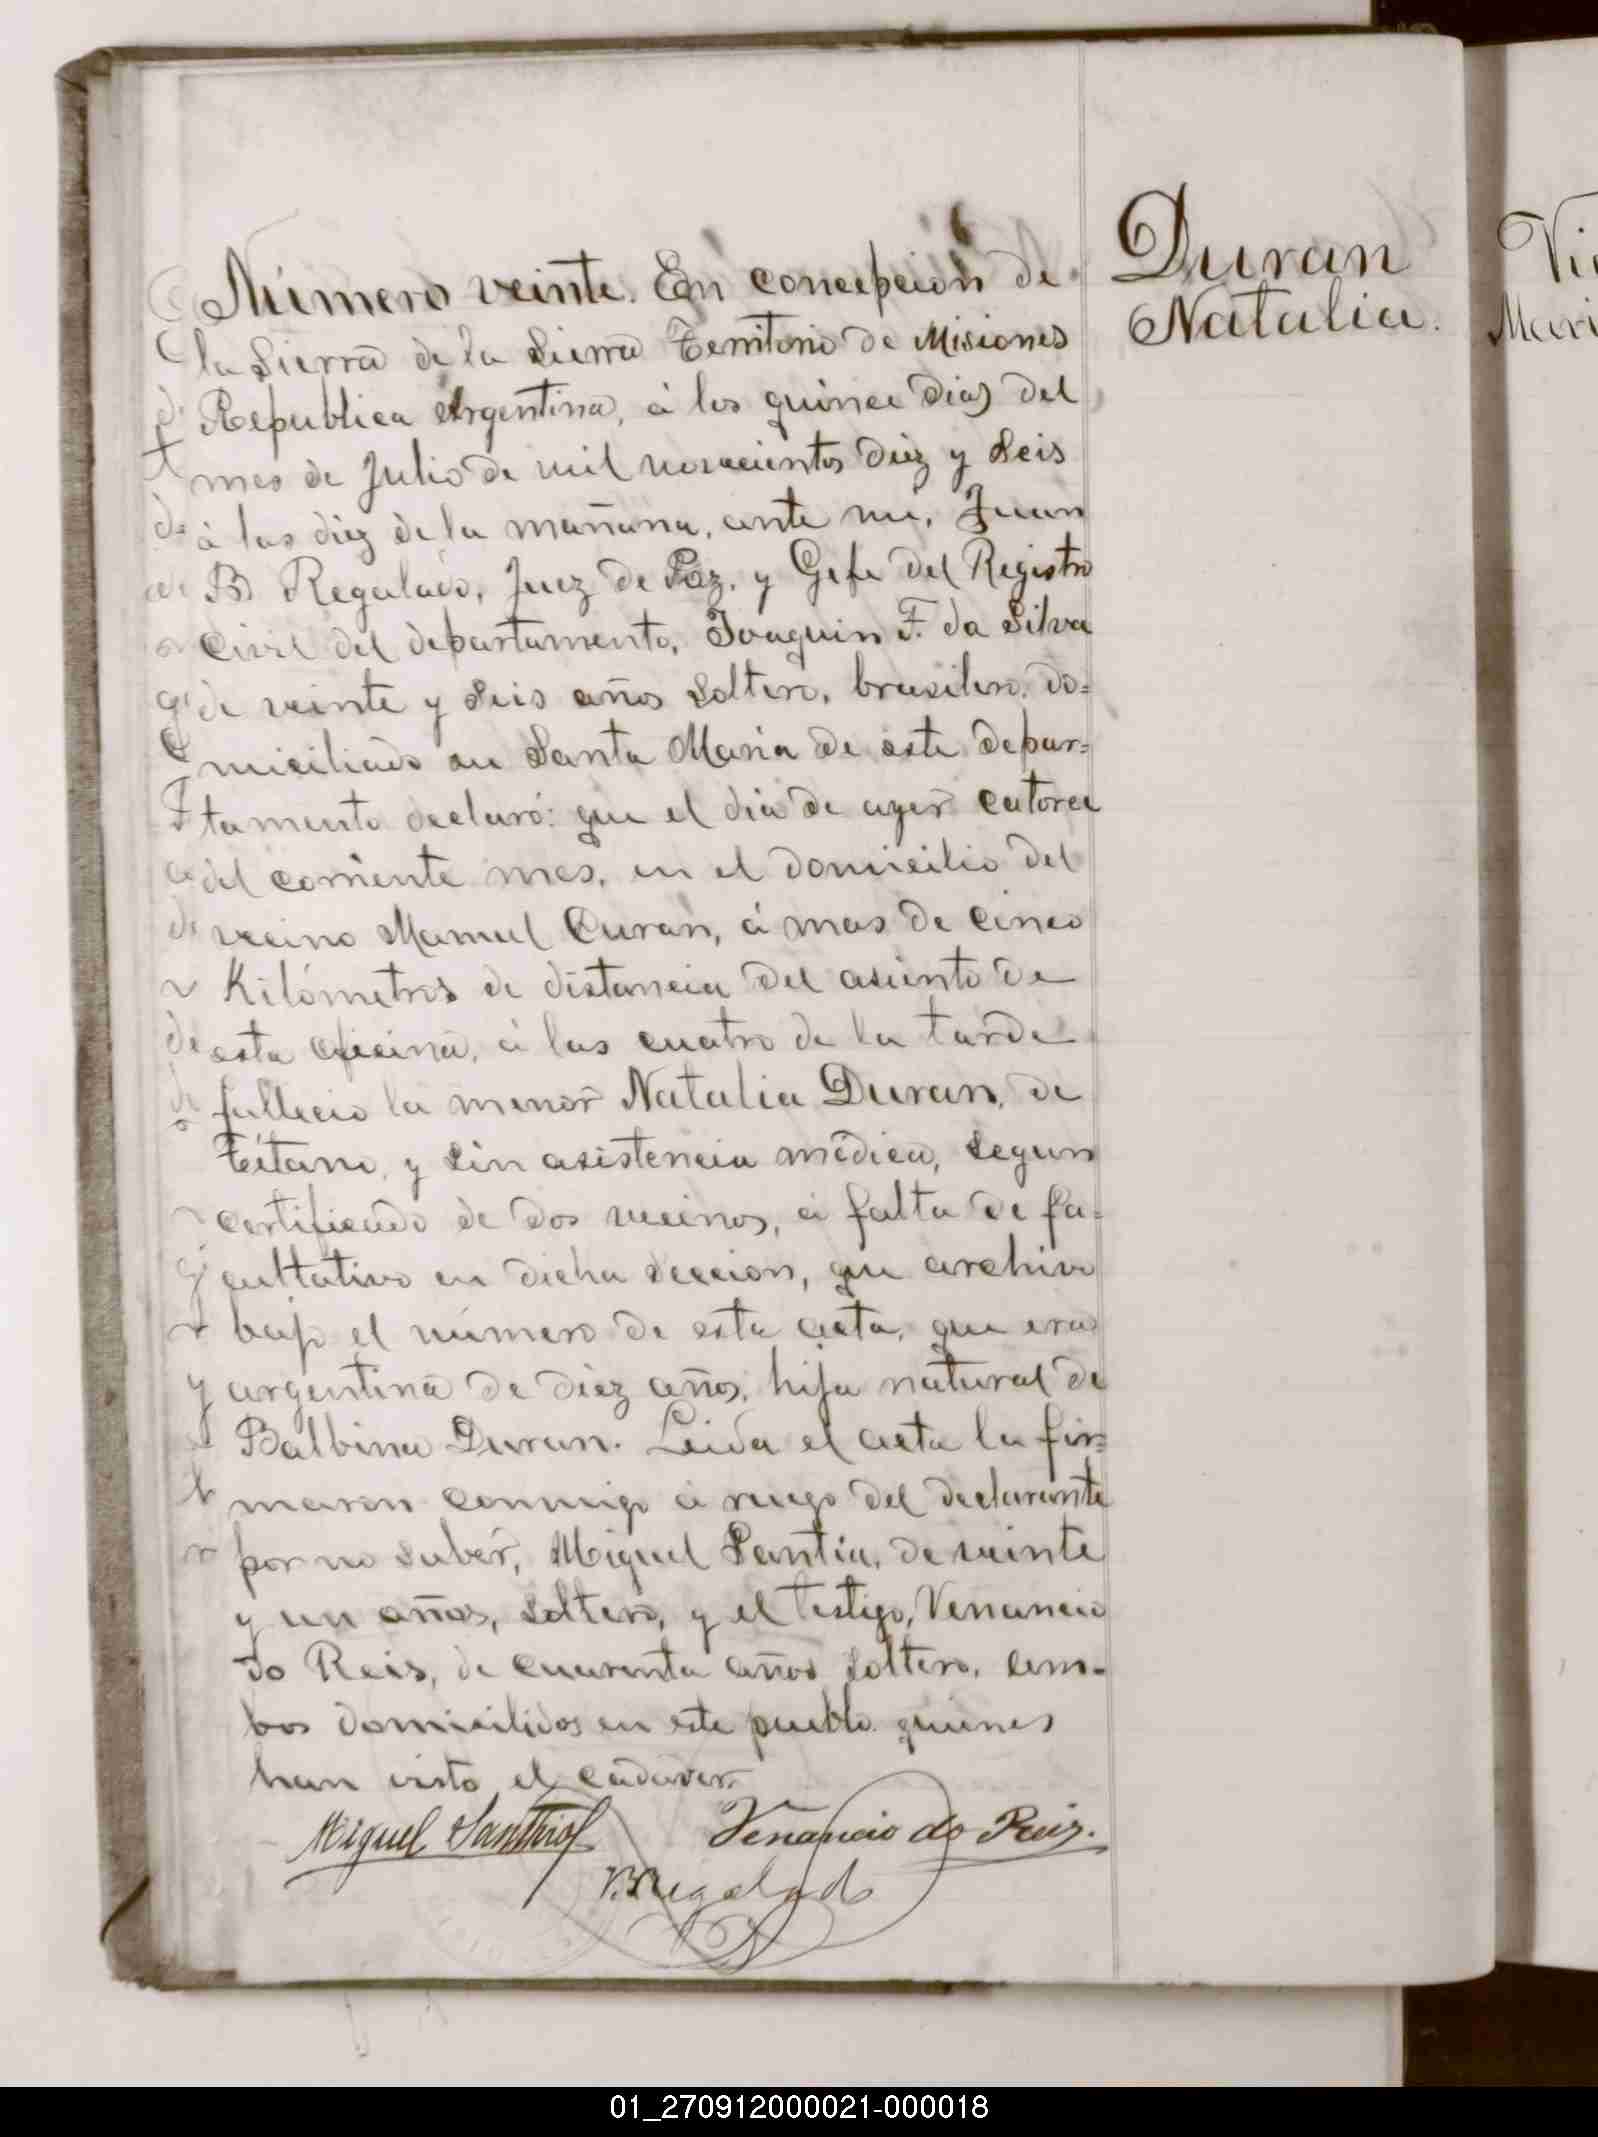 Número veinte. En Concepcion de
la Sierra de la Sierra Territorio de Misiones
Republica Argentina, á los quince dias del
mes de Julio de mil novecientos diez y seis
á las diez de la mañana, ante mi, Juan
B Regalado, Juez de Paz, y Gefe del Registro
Civil del departamento, Joaquin F. da Silva
de veinte y seis años soltero, brasilero, do=
miciliado en Santa Maria de este depar=
tamento declaró: que el dia de ayer catorce
del corriente mes, en el domicilio del
vecino Manuel Curan, á mas de cinco
Kilómetros de distancia del asiento de
esta oficina, á las cuatro de la tarde
fallecio la menor Natalia Duran, de
Tétano, y sin asistencia médica, segun
certificado de dos vecinos, á falta de fa=
cultativo en dicha seccion, que archivo
bajo el número de esta acta, que era
argentina de diez años, hija natural de
Balbina Duran. Leida el acta la fir=
maron conmigo á ruego del declarante
por no saber, Miguel Santia, de veinte
y un años, soltero, y el testigo, Venancio
do Reis, de cuarenta años soltero, am=
bos domicilidos en este pueblo quienes
han visto el cadaver.
Miguel Venancio do Reis.
Regalado
Duran
Natalia.
Vi
Mari
01_270912000021-000018